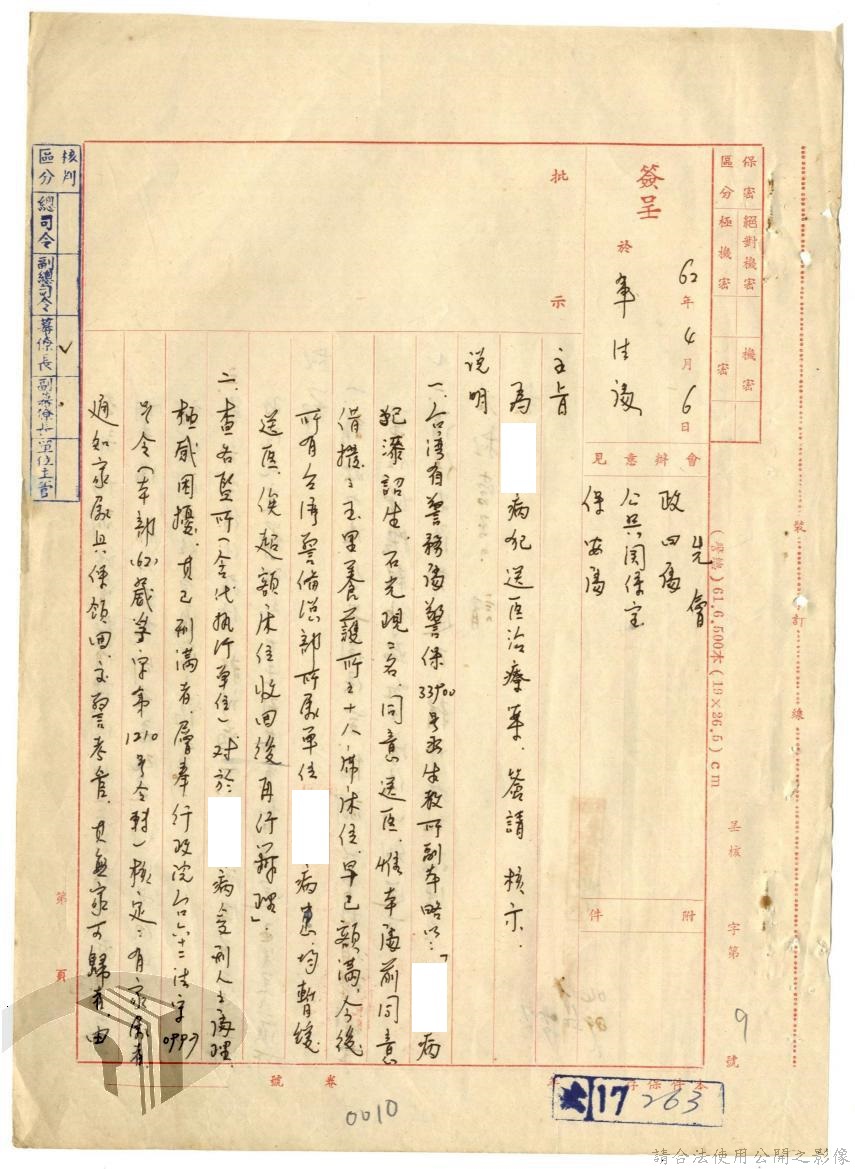 保密區分
絕對機密
極機密
機密
密
裝訂線
(警總)61.6.500本(19×26.5)cm
呈核 字第 9 號
簽呈
62年4月6日
於軍法處
會辦意見
先會
政四處
公共關係室
保安處
附件
批示
主旨
為 病犯送医治療案，簽請 核示。
說明
一、台湾省警務處警保33900号致生教所副本略以：「 病
犯 詔生、石光現二名，同意送医，惟本處前同意
借撥之玉里養護所五十八席床位，早已額滿，今後
所有台灣警備總部所屬單位 病患，均暫緩
送医，俟超額床位收回後再行辦理」。
二、查各監所（含代執行單位）对於 病受刑人之處理，
極感困擾，其已刑滿者，層奉行政院台六十二法字0997
号令（本部(62)嚴 字第1210号令轉）核定：有家屬者，
通知家屬具保領回，交警考管，其無家可歸者，由
核判區分
總司令
副總司令
幕僚長
副幕僚長
單位主管
第 頁
本件保存 年
卷 號
0010
17 263
請合法使用公開之影像